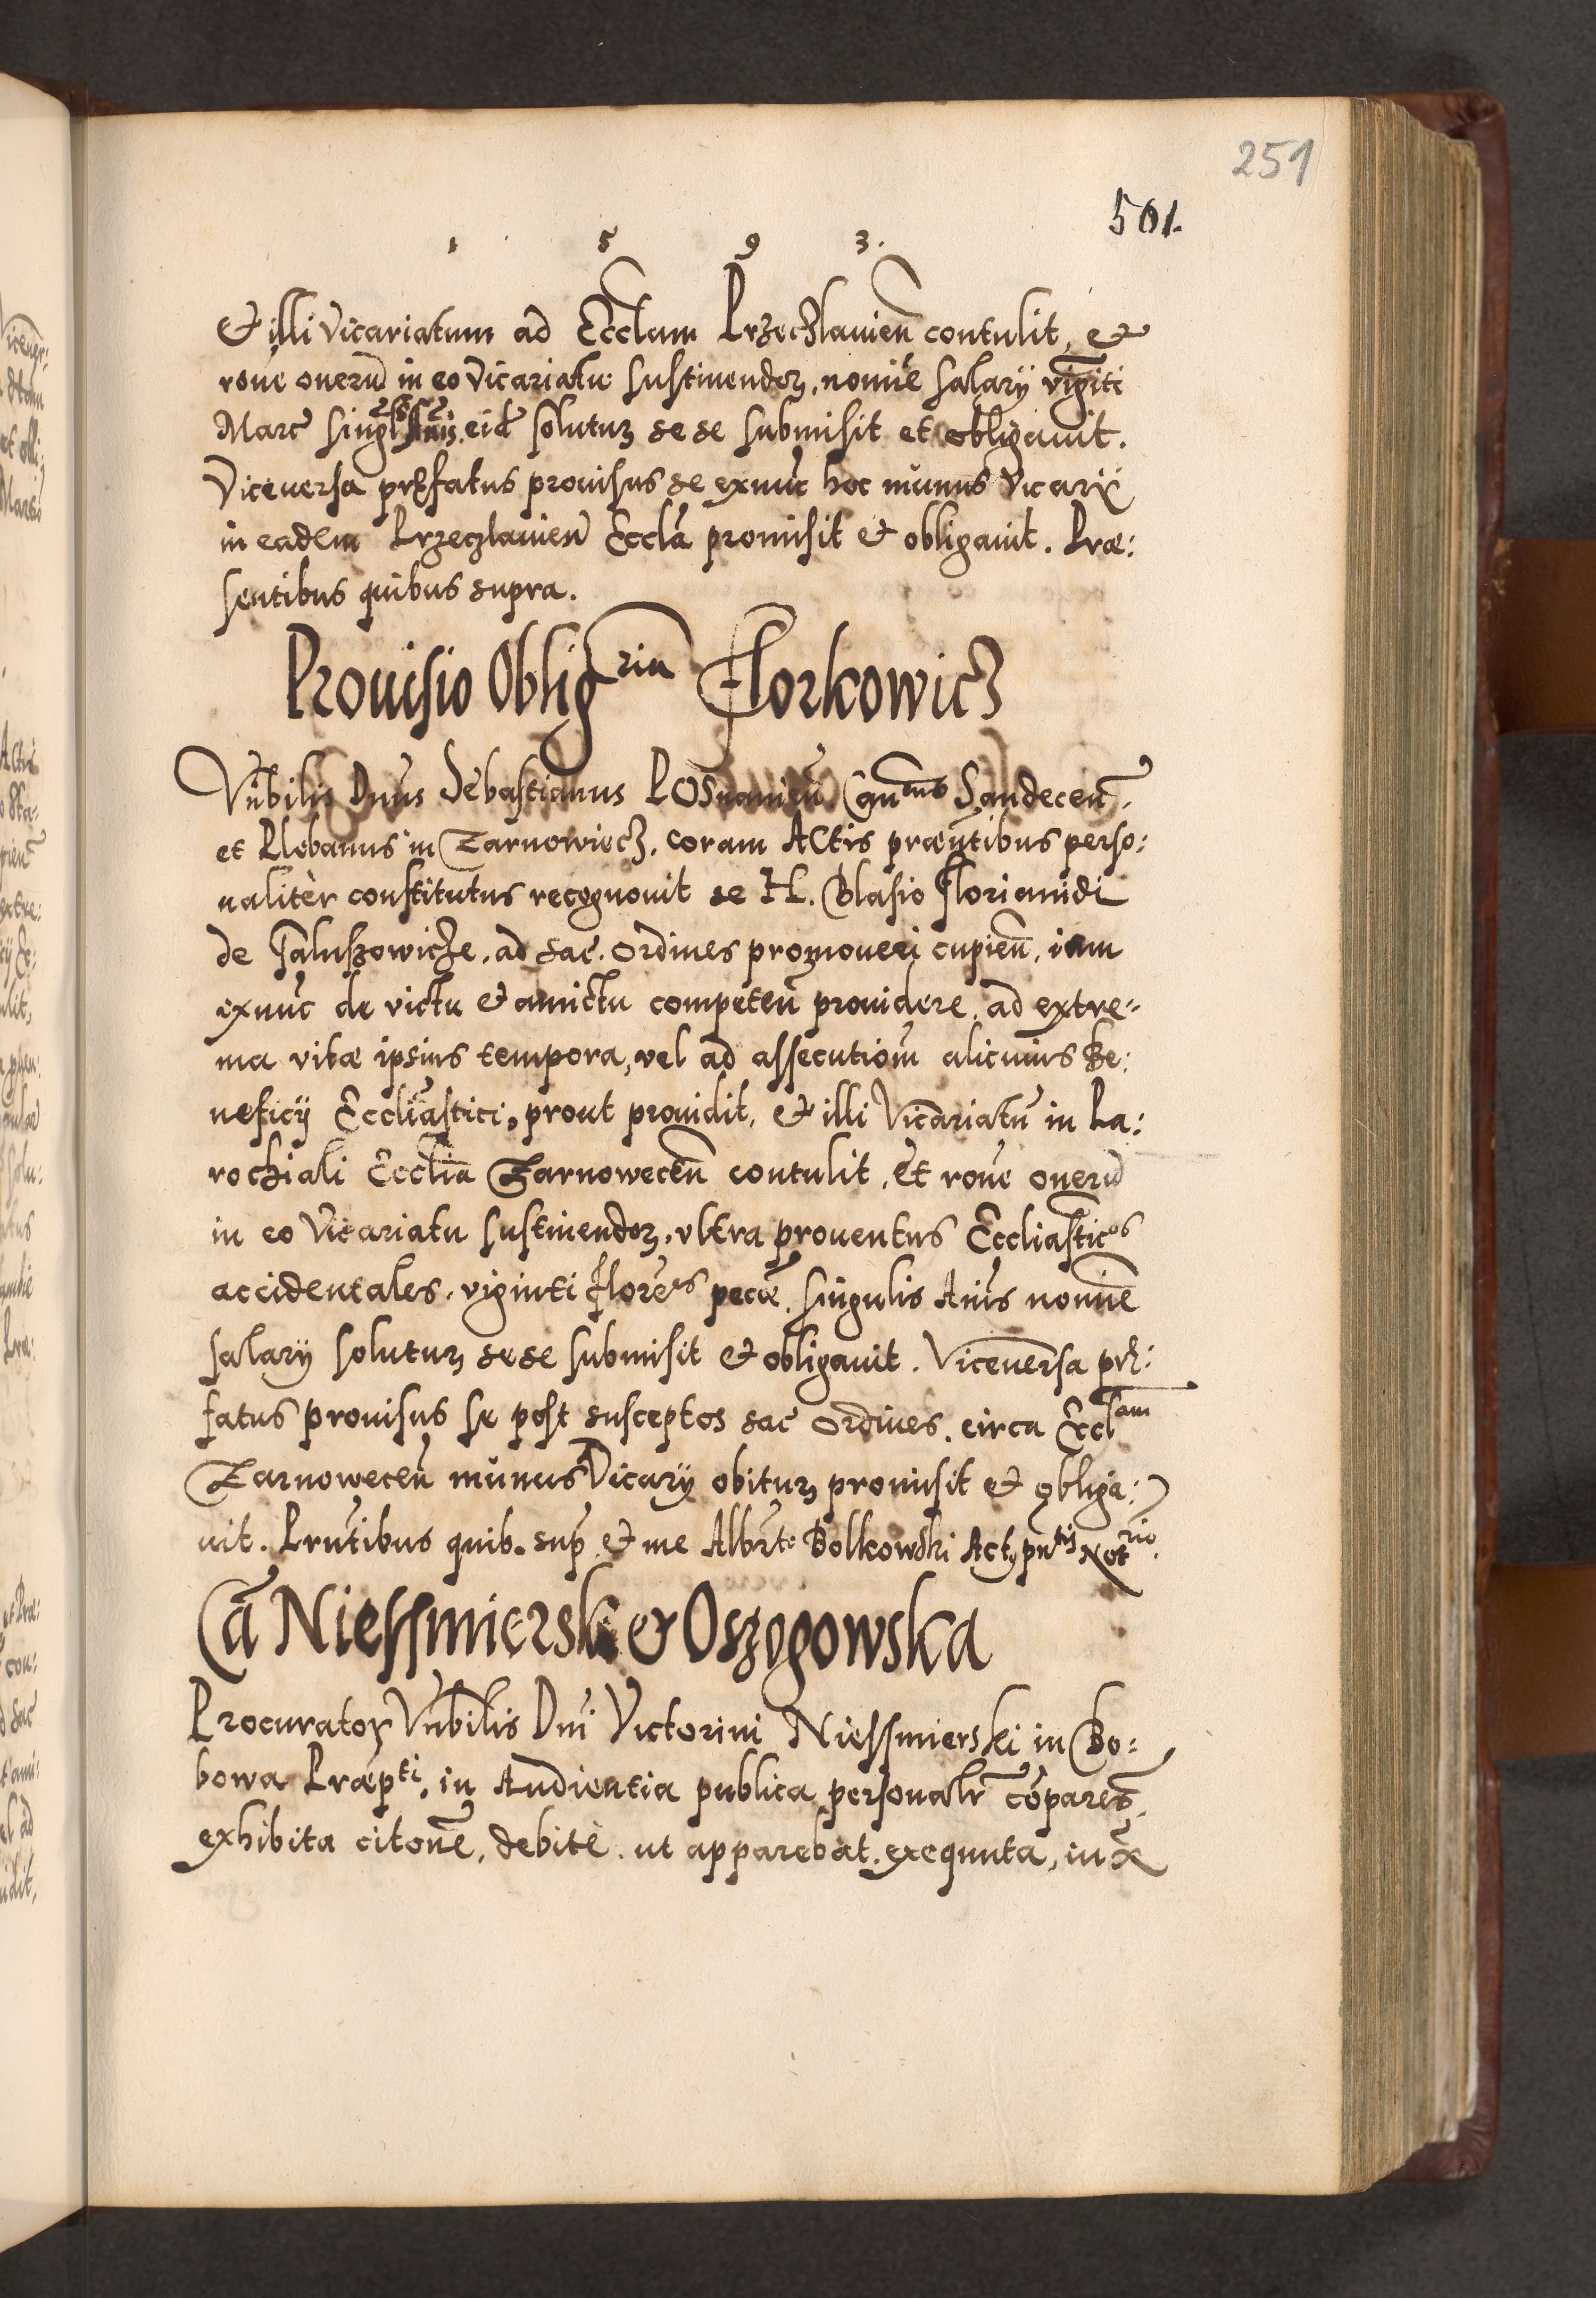 251
501.
1 5 9 3.
Et illi Vicariatum ad Eccłam Przeczlavień contulit, et
rōne onerū in eo Vicariatu sustinendoꝝ, nomīe salarÿ vigīti
Març singlis Anis. eid solutuꝝ se se submisit et obligauit.
Viceuersa pręfatus prouisus se exnūc hoc mŭnus Vicarii
in eadem Przeczlavień Eccła promisit et obligauit. Præ:
sentibus quibus supra.
Prouisio Oblig ria Florkowicz
Vnbilis Dn̄us Sebastianus POSnanień Cancus Sandeceń,
et Plebanus in Zarnowiecz, coram Actis præn̄tibus perso:
nalitèr constitutus recognouit se H. Blasio Floriamidi
de Jaluszowicze, ad sac. ordines promoueri cupień, iam
exnūc de victu et amictu competeń prouidere, ad extre:
ma vitæ ipsius tempora, vel ad assecutiom̄ alicuius Be:
neficÿ Eccliāstici, prout prouidit, et illi Vicariatū in Pa:
rochiali Eccliā Zarnoweceń contulit, Et rōne onerū
in eo Vicariatu sustinendoꝝ, vltra prouentus Eccliasticos
accidentales, viginti florēos pecæ, singulis Anīs nomīne
salarÿ solutuꝝ sese submisit et obligauit. Viceuersa prę:
fatus prouisus se post susceptos sac ordines, circa Ecclam
Zarnoweceń mŭnus Vicarÿ obituꝝ promisit et obliga:
uit. Prn̄tibus quib. sup et me Albrto Bolkowski Act pn̄tis Notrio.
Cā Niessmierski et Oszogowska
Procurator Vn̄bilis Dn̄i Victorini Niessmierski in Bo:
bowa Præpti, in Audientia publica personalr̄ cōpareꝫ,
exhibita citōne, debitè ut apparebat, exequuta, iuxa